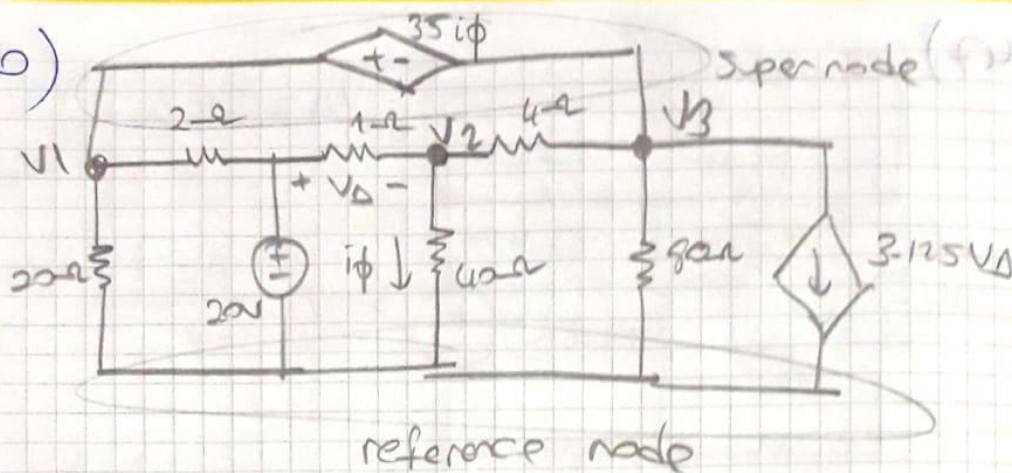 b)
35 iϕ
+ -
supernode
2Ω
1Ω
V2
4Ω
V3
V1
+ VΔ -
20Ω
+
-
20V
iϕ ↓
40Ω
80Ω
↓
3.125 VΔ
reference node